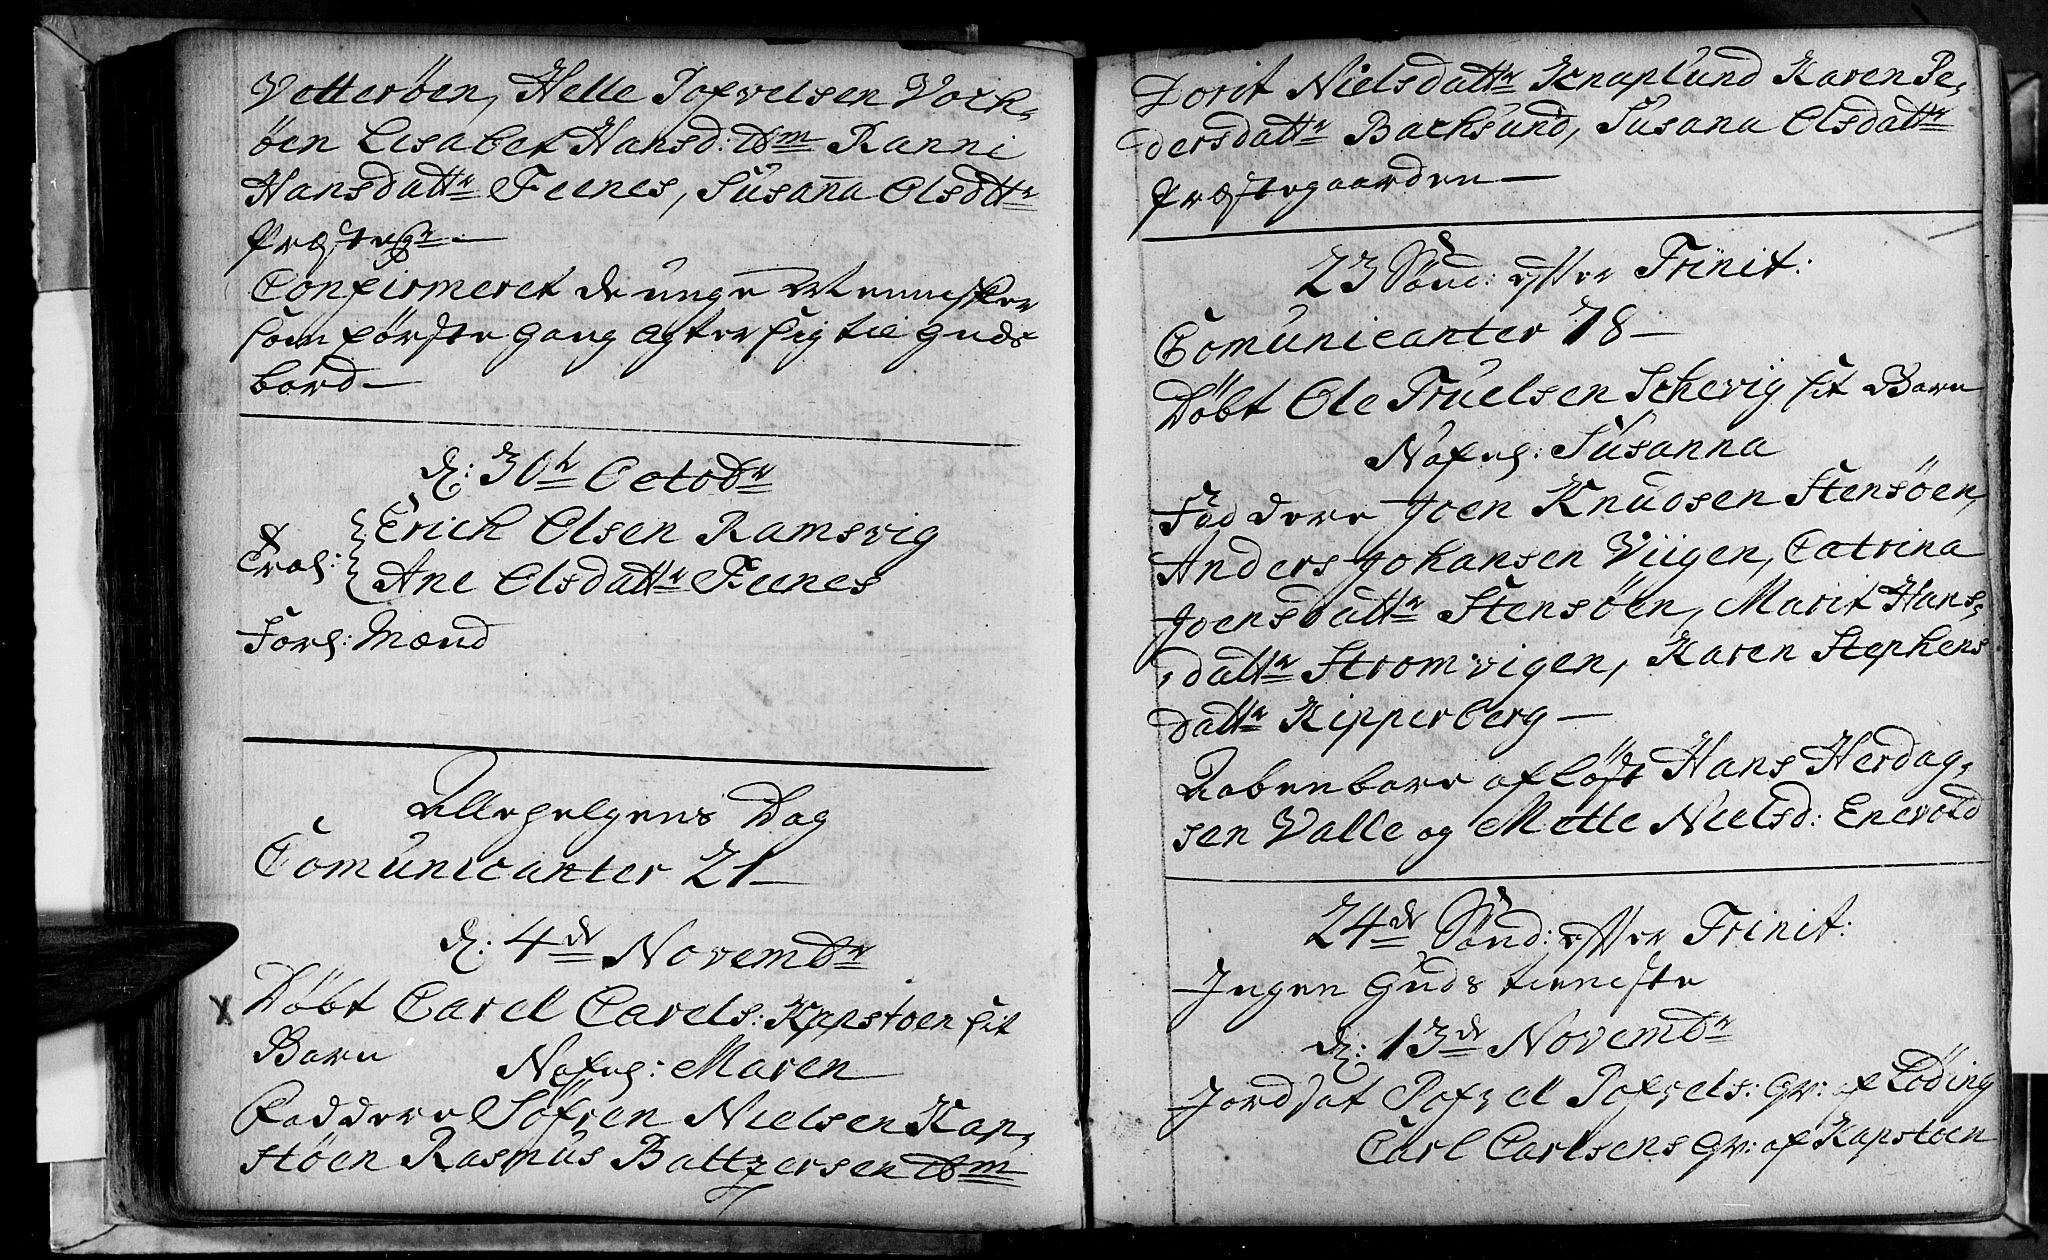 Vetterøen, Helle Pofvelsen Voch-
øen Lisabet Hansd: ibm Ranni
Hansdattr Feenes, Susanna Olsdttr
Præstegr
Confirmeret de unge Mennisker
som første gang agter sig til Guds
bord
d: 30te Octobr
Trol: Erich Olsen Ramsvig
Ane Olsdattr Feenes
Forl: Mænd
Allehelgens Dag
Comunicanter 21
d: 4de Novembr
Døbt Carel Carels: Kapstøen sit
Barn Nafnl: Maren
Faddere Søfren Nielsen Kap-
støen Rasmus Baltzersen ibm
Dorit Nielsdattr Knaplund Karen Pe-
dersdattr Bachsund, Susana Olsdattr
Præstegaarden
23 Sønd: efter Trinit:
Comunicanter 78
Døbt Ole Truelsen Schevig sit Barn
Nafnl: Susanna
Faddere Joen Knudsen Stensøen,
Anders Johansen Viigen, Catrina
Joensdattr Stensøen, Marit Hans-
dattr Stromvigen, Karen Stephens
dattr Kipperberg
Aabenbare afløst Hans Herdag-
sen Valle og Mette Nielsd: Enevold
24de Sønd: efter Trinit:
Ingen Guds tieniste
d: 13de Novembr
Jordsat Pofvel Pofvels: Gr: af Løding
Carl Carlsens Gr: af Kapstøen